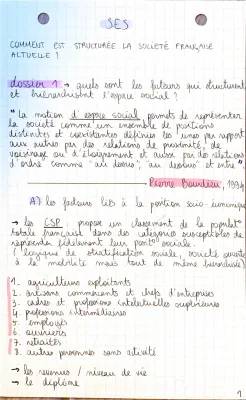 SES
COMMENT EST STRUCTURÉE LA SOCIÉTÉ FRANÇAISE
ACTUELLE ?
dossier 1 → quels sont les facteurs qui structurent
et hiérarchisent l'espace social ?
"La notion d'espace social permet de représenter
la société comme un ensemble de positions
distinctes et coexistantes définies les unes par rapport
aux autres par des relations de proximité, de
voisinage ou d'éloignement et aussi par des relations
d'ordre comme au dessus, au dessous et entre"
Pierre Bourdieu, 1994
A) les facteurs liés à la position socio-économique
→ les CSP : propose un classement de la populat°
totale française dans des catégories susceptibles de
représenter fidèlement leur posit° sociale.
(logique de stratification sociale, société ouverte
à la mobilité mais tout de même hiérarchisée)
1. agriculteurs exploitants
2. artisans commerçants et chefs d'entreprises
3. cadres et professions intellectuelles supérieures
4. professions intermédiaires
5. employés
6. ouvriers
7. retraités
8. autres personnes sans activité
→ les revenus / niveau de vie
→ le diplôme
1